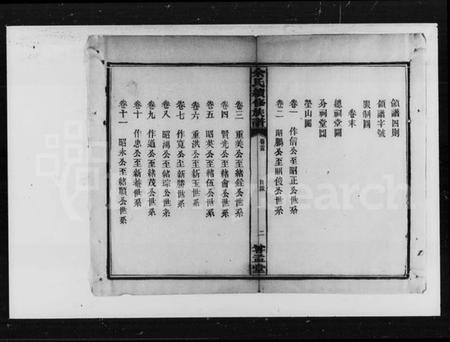 領譜四則
領譜字號
服制圖
卷末
總祠堂圖
分祠堂圖
塋山圖
卷一 作信公至昭正公世系
卷二 昭鵬公至昭俊公世系
余氏續修族譜 卷首 目錄 二
卷三 重美公至緒銓公世系
卷四 贊光公至緒會公世系
卷五 昭英公至緒伍公世系
卷六 重洪公至新玉公世系
卷七 作寬公至新勝公世系
卷八 昭鴻公至緒琮公世系
卷九 作通公至緒茂公世系
卷十 作忠公至新椿公世系
卷十一 昭永公至緒順公世系